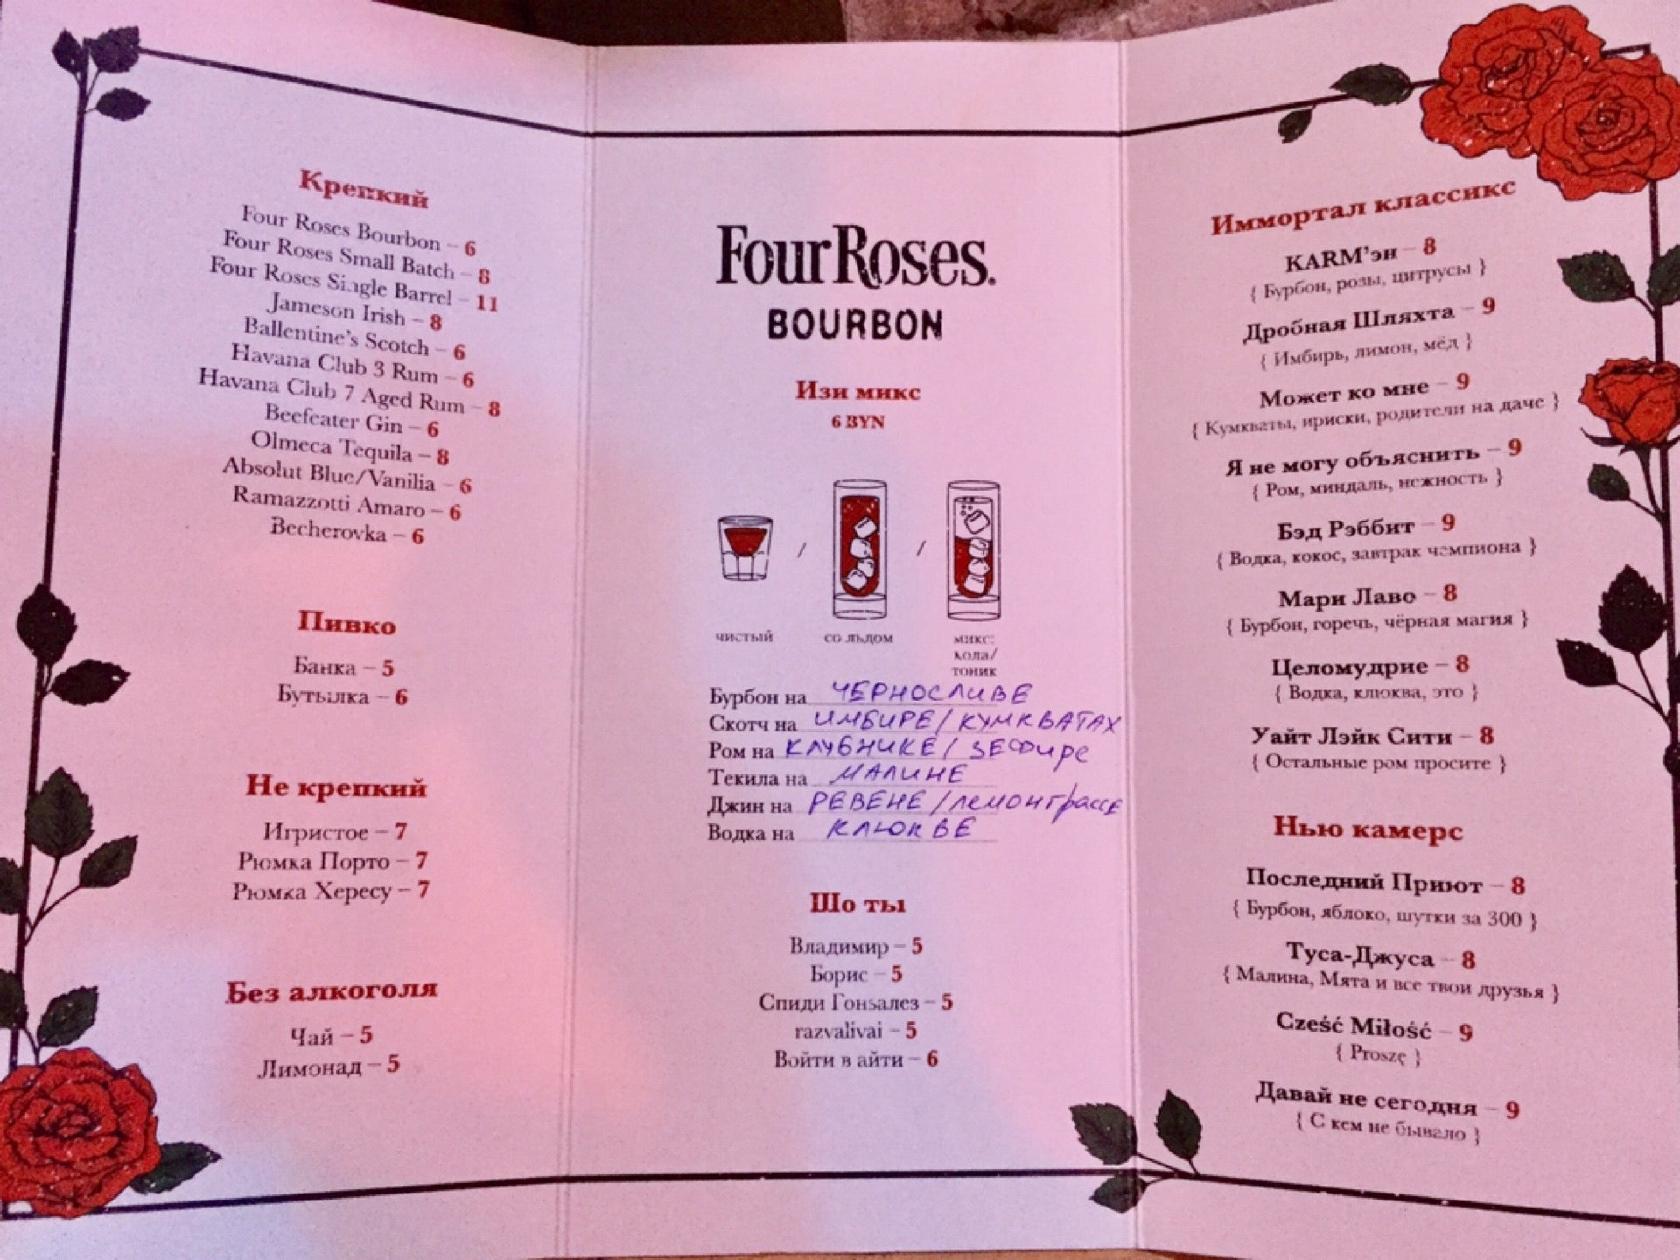 Крепкий
Four Roses Bourbon – 6
Four Roses Small Batch – 8
Four Roses Single Barrel – 11
Jameson Irish – 8
Ballentine's Scotch – 6
Havana Club 3 Rum – 6
Havana Club 7 Aged Rum – 8
Beefeater Gin – 6
Olmeca Tequila – 8
Absolut Blue/Vanilia – 6
Ramazzotti Amaro – 6
Becherovka – 6
Пивко
Банка – 5
Бутылка – 6
Не крепкий
Игристое – 7
Рюмка Порто – 7
Рюмка Хересу – 7
Без алкоголя
Чай – 5
Лимонад – 5
Four Roses.
BOURBON
Изи микс
6 BYN
чистый / со льдом / микс:
кола/
тоник
Бурбон на ЧЕРНОСЛИВЕ
Скотч на ИМБИРЕ/КУМКВАТАХ
Ром на КЛУБНИКЕ/ЗЕФИРЕ
Текила на МАЛИНЕ
Джин на РЕВЕНЕ/лемонграссе
Водка на КЛЮКВЕ
Шо ты
Владимир – 5
Борис – 5
Спиди Гонзалез – 5
razvalivai – 5
Войти в айти – 6
Иммортал классикс
KARM'эн – 8
{ Бурбон, розы, цитрусы }
Дробная Шляхта – 9
{ Имбирь, лимон, мёд }
Может ко мне – 9
{ Кумкваты, ириски, родители на даче }
Я не могу объяснить – 9
{ Ром, миндаль, нежность }
Бэд Рэббит – 9
{ Водка, кокос, завтрак чемпиона }
Мари Лаво – 8
{ Бурбон, горечь, чёрная магия }
Целомудрие – 8
{ Водка, клюква, это }
Уайт Лэйк Сити – 8
{ Остальные ром просите }
Нью камерс
Последний Приют – 8
{ Бурбон, яблоко, шутки за 300 }
Туса-Джуса – 8
{ Малина, Мята и все твои друзья }
Cześć Miłość – 9
{ Proszę }
Давай не сегодня – 9
{ С кем не бывало }